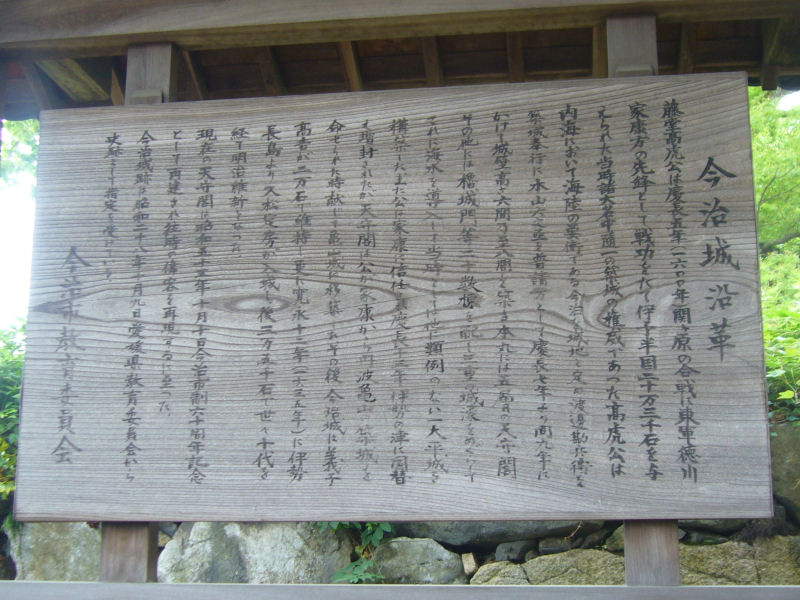 今治城沿革
藤堂高虎公は慶長五年(一六〇〇年)関ヶ原の合戦に東軍徳川
家康方の先鋒として戦功をたて伊予半国二十万三千石を与
えられた当時諸大名中随一の築城の権威であった高虎公は
内海において海陸の要衝である今治を城地と定め渡邉勘兵衛を
築城奉行に木山六之丞を普請方として慶長七年より同九年に
かけて城塁高さ六間乃至八間を築き本丸には五層の天守閣
その他には櫓城門等二十数棟を配し三重の城濠をめぐらして
それに海水を導入した当時としては他に類例のない大平城を
構築したまた公は家康に信任され慶長十三年伊勢の津に国替
え増封されたが天守閣は公が家康から丹波亀山に築城を
命ぜられた時献じて亀山城に移築されその後今治城は義子
高吉が二万石で維持し更に寛永十二年(一六三五年)に伊勢
長島より久松定房が入城し後三万五千石で世々十代を
経て明治維新となった
現在の天守閣は昭和五十五年十月十日今治市制六十周年記念
として再建され往時の偉容を再現するに至った
今治城跡は昭和二十八年十月九日愛媛県教育委員会から
史跡として指定を受けている
今治市教育委員会